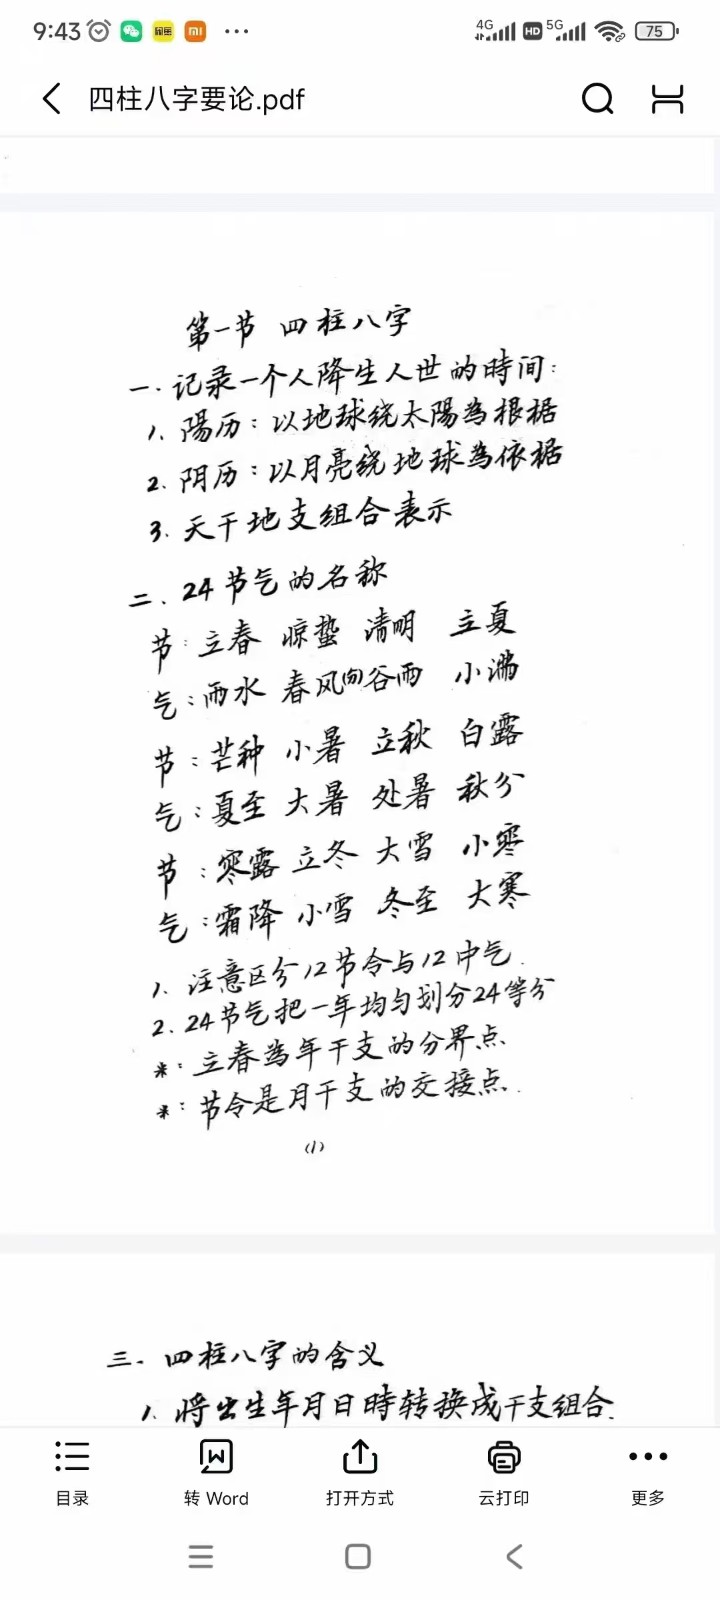 9:43 闲鱼 mi ··· 4G HD 5G 75
四柱八字要论.pdf
第一节 四柱八字
一. 记录一个人降生人世的時间:
1. 陽历: 以地球绕太陽為根据
2. 阴历: 以月亮绕地球為依据
3. 天干地支组合表示
二、24节气的名称
节: 立春 惊蛰 清明 立夏
气: 雨水 春风(勿) 谷雨 小满
节: 芒种 小暑 立秋 白露
气: 夏至 大暑 处暑 秋分
节: 寒露 立冬 大雪 小寒
气: 霜降 小雪 冬至 大寒
1. 注意区分12节令与12中气.
2. 24节气把一年均匀划分24等分
*: 立春為年干支的分界点.
*: 节令是月干支的交接点.
(1)
三. 四柱八字的含义
1. 将出生年月日時转换成干支组合.
目录 转 Word 打开方式 云打印 更多